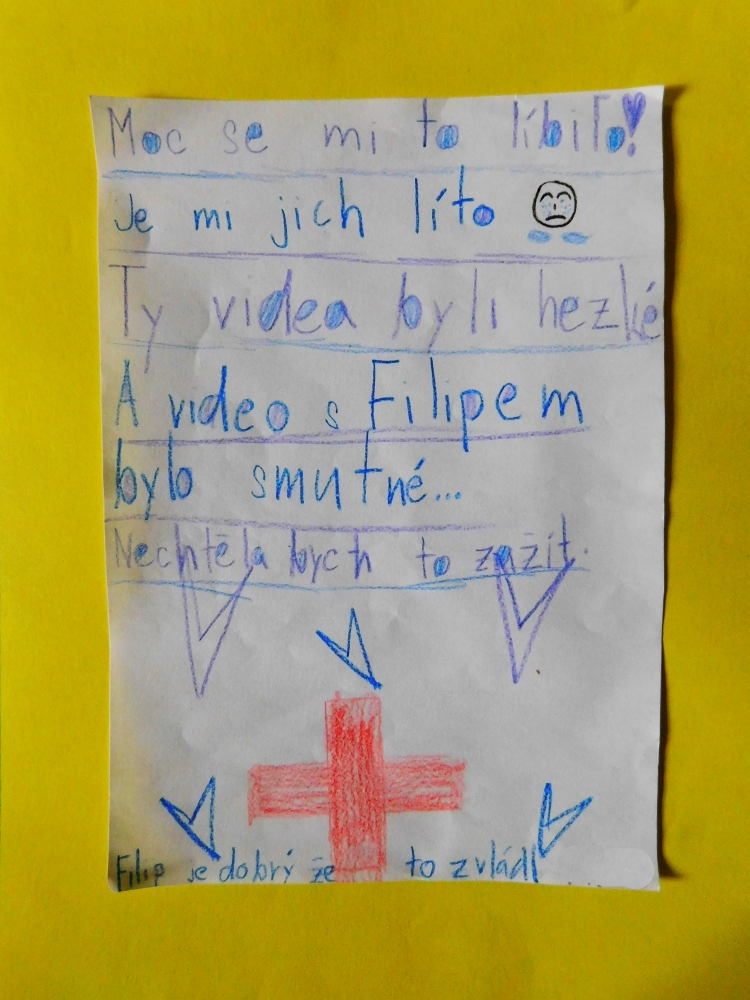 Moc se mi to líbilo!
Je mi jich líto
Ty videa byli hezké
A video s Filipem
bylo smutné...
Nechtěla bych to zažít.
Filip je dobrý že to zvládl